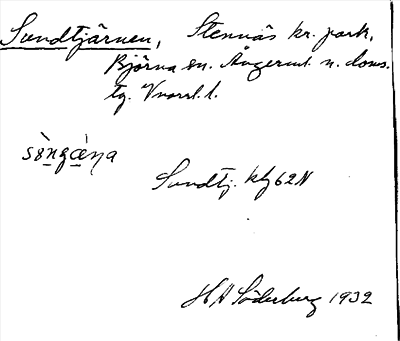 Sundtjärnen, Stennäs kr. park,
Björna sn. Ångerml. n. doms.
tg. Vnorrl. l.
Sundtj. kbj 62 N
H A Söderburg 1932